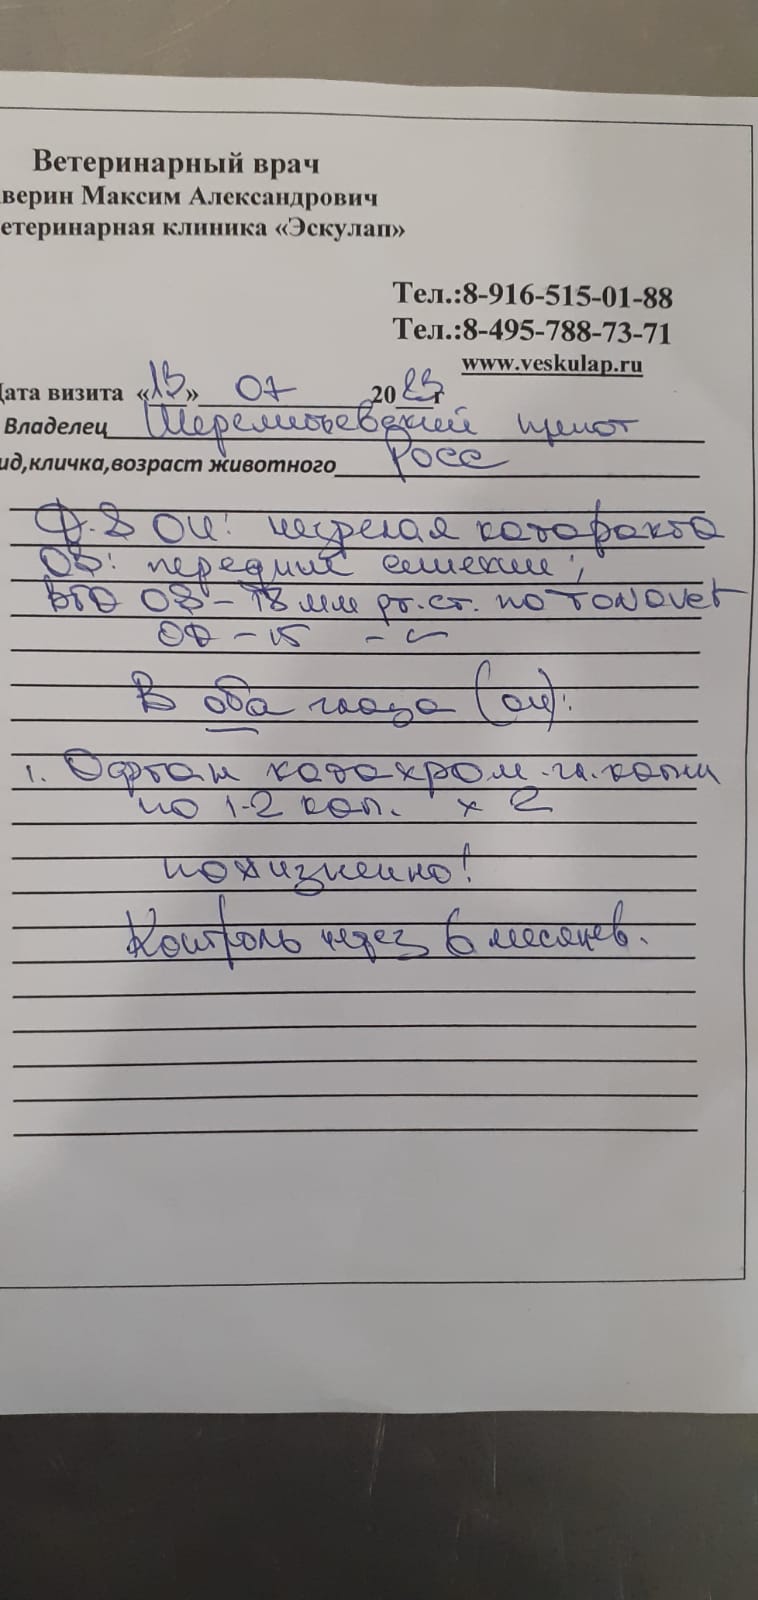 Ветеринарный врач
верин Максим Александрович
етеринарная клиника «Эскулап»
Тел.:8-916-515-01-88
Тел.:8-495-788-73-71
www.veskulap.ru
Дата визита «13» 07 2023г
Владелец Шереметьевский приют
ид,кличка,возраст животного Росс
Д.S OU: незрелая катаракта
OS: передние синехии;
ВГД OS - 18 мм рт.ст. по TONOVET
OD - 15 -"-
В оба глаза (ou):
1. Офтан катахром гл. капли
по 1-2 кап. x 2
пожизненно!
Контроль через 6 месяцев.